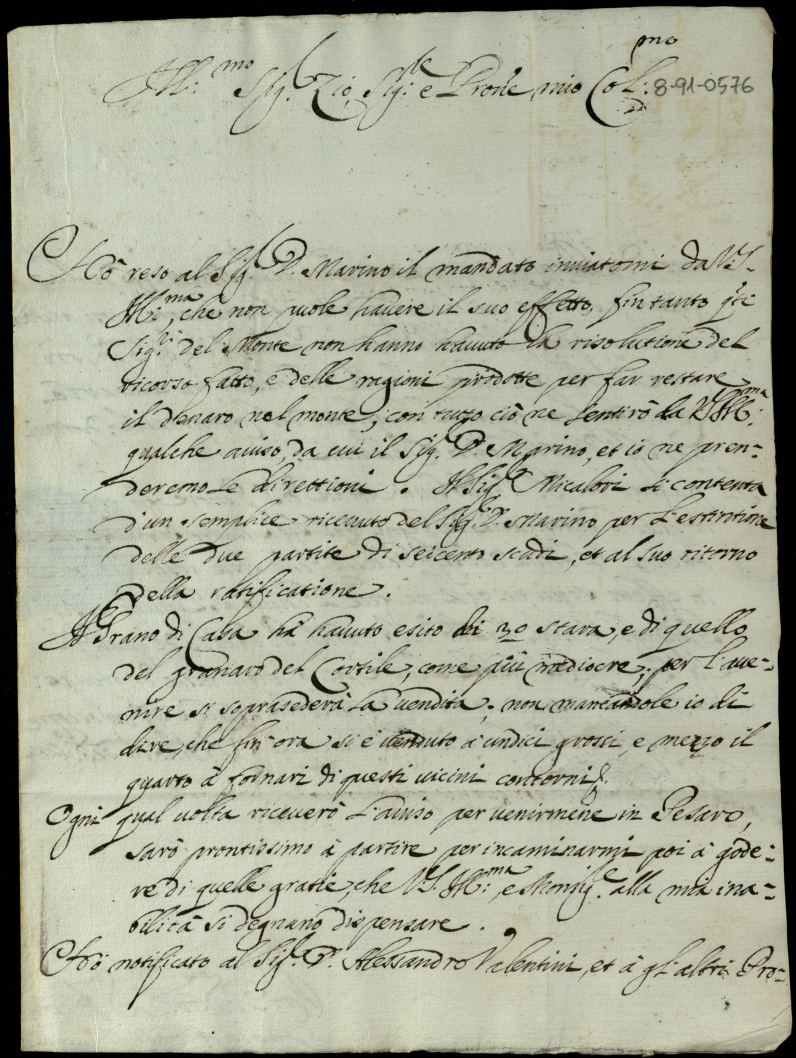 Ill:mo Sig.r Zio, Sig:re e Prone mio Col:mo 8-91-0576
Hò reso al Sig.r D. Marino il mandato inviatomi da V.S.
Ill:ma, che non puole havere il suo effetto, fin tanto q.ti
Sig.ri del Monte non hanno havuto la risolutione del
ricorso fatto, e delle ragioni prodotte per far restare
il denaro nel monte; con tutto ciò ne sentirò da V.S. Ill:ma
qualche aviso, da cui il Sig.r D. Marino, et io ne pren=
deremo le direttioni. Il Sig.r Micalori si contenta
d'un semplice riceuuto del Sig.r D. Marino per l'estintione
delle due partite di seicento scudi, et al suo ritorno
della ratificatione.
Il Grano di Casa hà havuto esito di 30 stara, e di quello
del granaro del Cortile, come più mediocre; per l'aue=
nire si soprasederà la vendita; non mancandole io di
dire, che fin'ora si è venduto à undici grossi, e mezzo il
quarto à fornari di questi uicini contorni.
Ogni qual uolta riceuerò l'auiso per uenirmene in Pesaro,
sarò prontissimo à partire per incaminarmi poi à gode=
re di quelle gratie, che V.S. Ill:ma, e Monsig.re alla mia ina=
bilità si degnano dispensare.
Hò notificato al Sig.r D. Alessandro Valentini, et à gl'altri Pro=